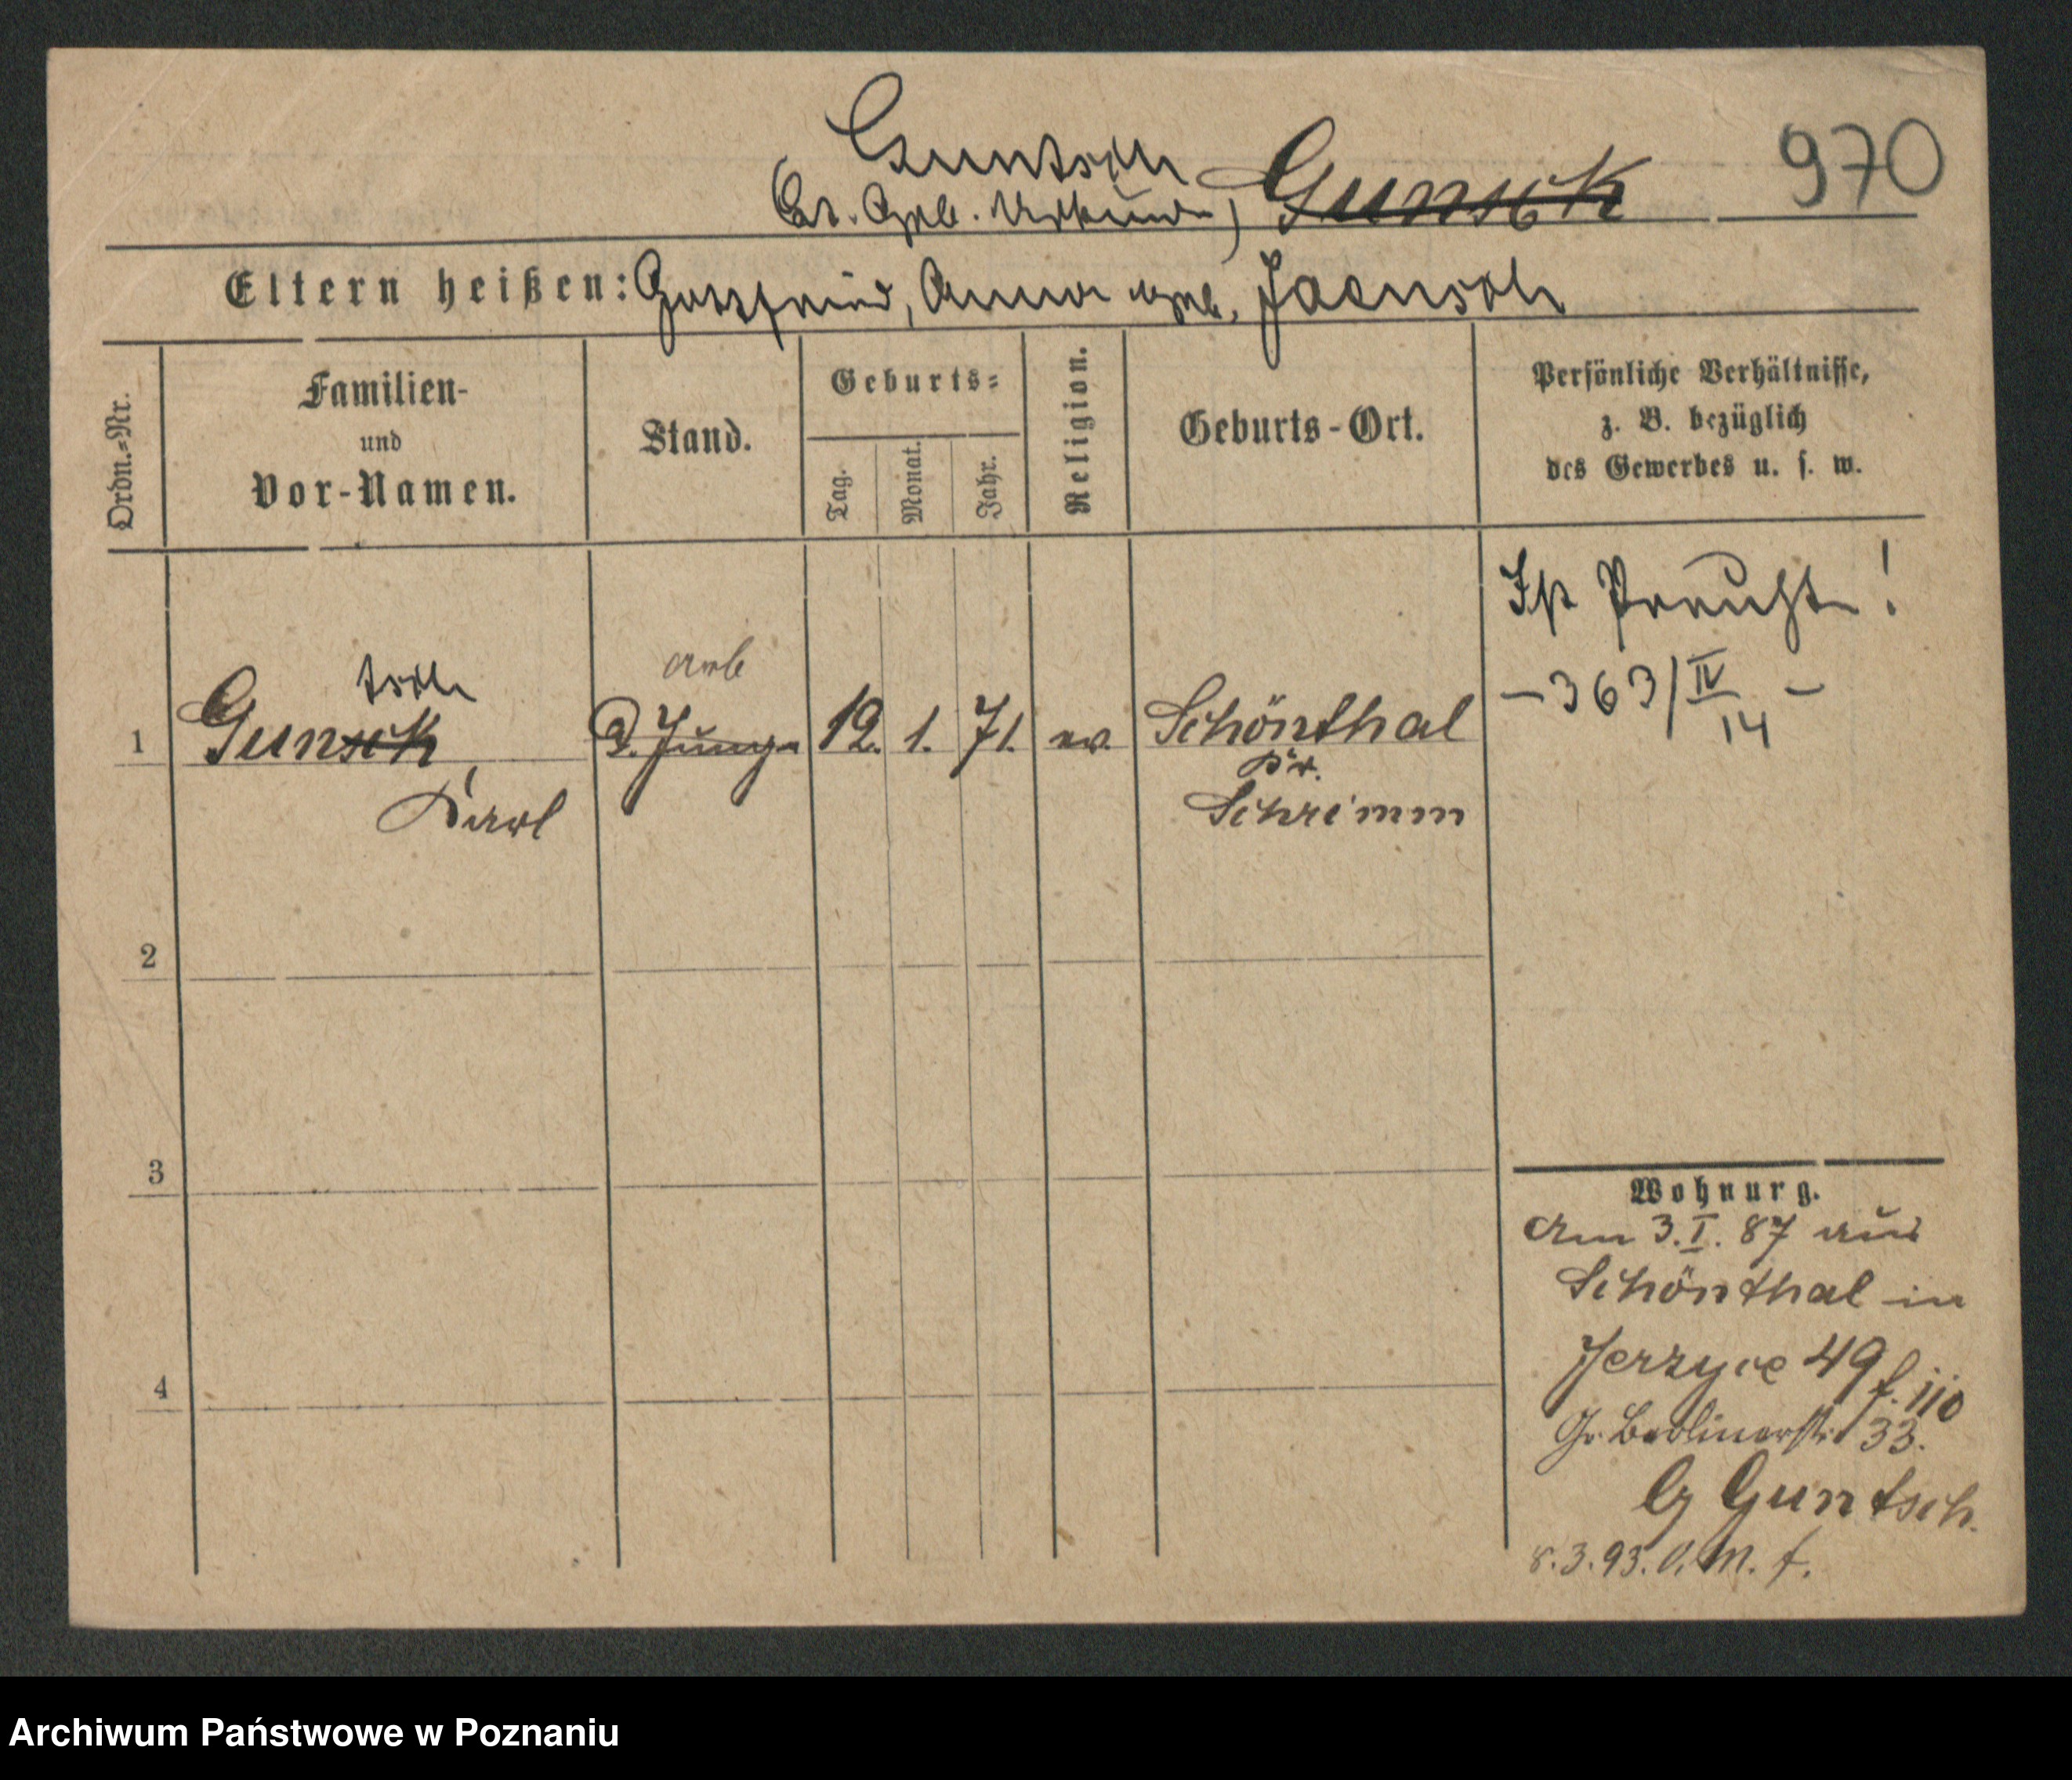 Guntsch
(Lt. Geb. Urkunde) Gunsck
970
Eltern heißen: Gottfried, Anna geb. Jaensch
Ordn.-Nr.
Familien-
und
Vor-Namen.
Stand.
Geburts-
Tag.
Monat.
Jahr.
Religion.
Geburts-Ort.
Persönliche Verhältnisse,
z. B. bezüglich
des Gewerbes u. s. w.
Ist Preuße!
- 363/IV
14 -
tsch
arb
1 Gunsck, D. Junge 12. 1. 71. ev. Schönthal
Kr.
Karl Schrimm
2
3
4
Wohnurg.
Am 3. I. 87 aus
Schönthal in
Jerzyce 49 f. 110
Gr. Berlinerstr. 33.
G Guntsch.
8.3.93. O. M. f.
Archiwum Państwowe w Poznaniu